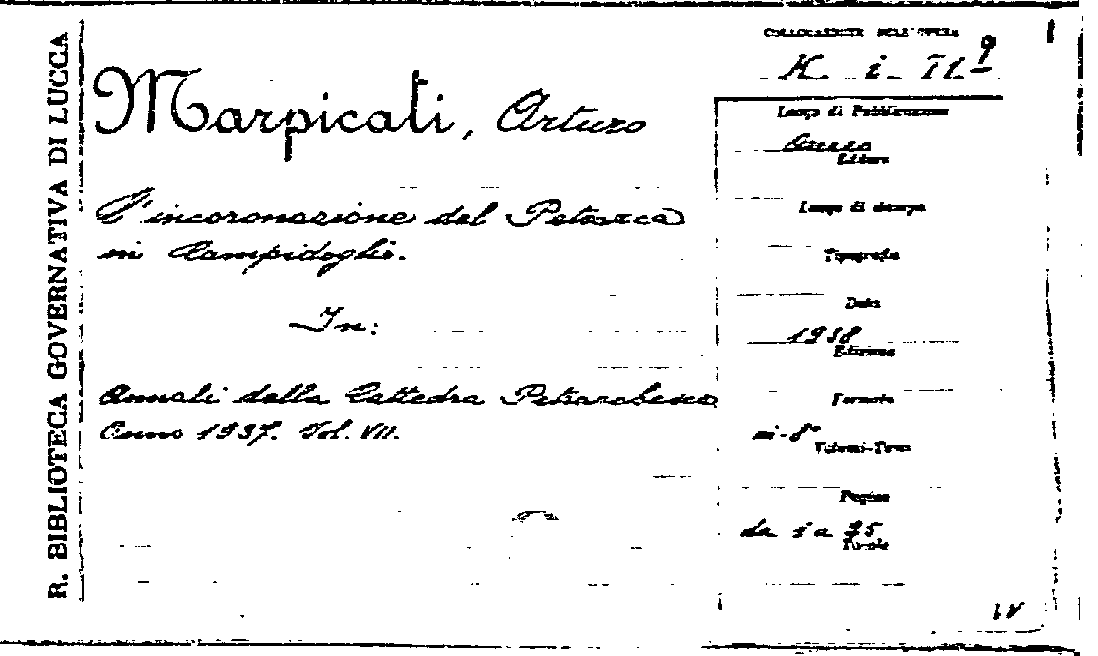 R. BIBLIOTECA GOVERNATIVA DI LUCCA
Marpicati, Arturo
L'incoronazione del Petrarca
in Campidoglio.
In:
Annali della Cattedra Petrarchesca
Anno 1937. Vol. VII.
COLLOCAZIONE DELL'OPERA
Luogo di Pubblicazione
Arezzo
Editore
Luogo di stampa
Tipografia
Data
1938
Edizione
Formato
in-8°
Volumi-Tomi
Pagine
da 1 a 25
Tavole